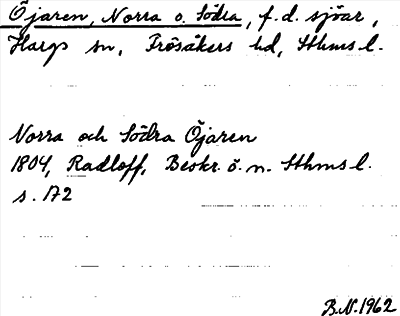 Öjaren, Norra o. Södra, f. d. sjöar,
Hargs sn, Frösåkers hd, Sthms l.
Norra och Södra Öjaren
1804, Radloff, Beskr. ö. n. Sthms l.
s. 172
B.N. 1962